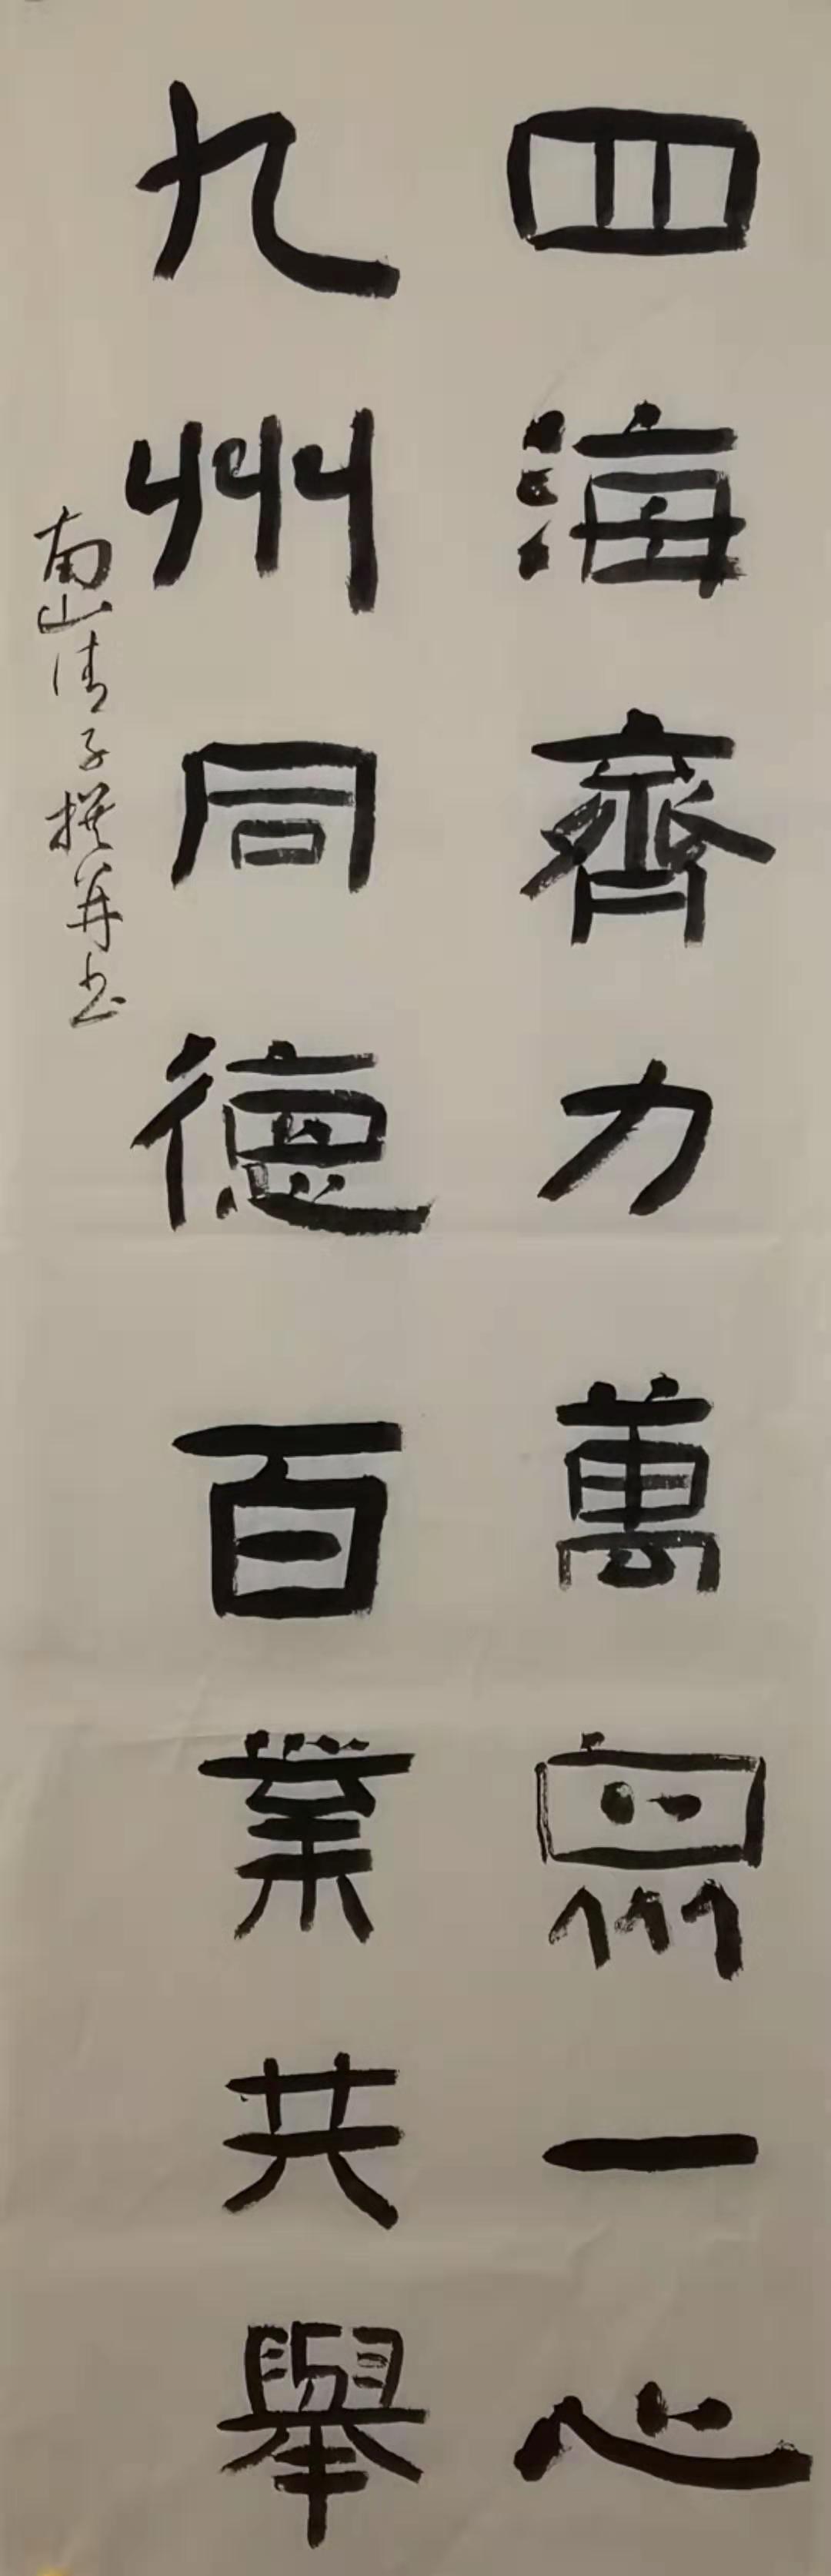 四海齊力萬眾一心
九州同德百業共舉
南山清子撰并书